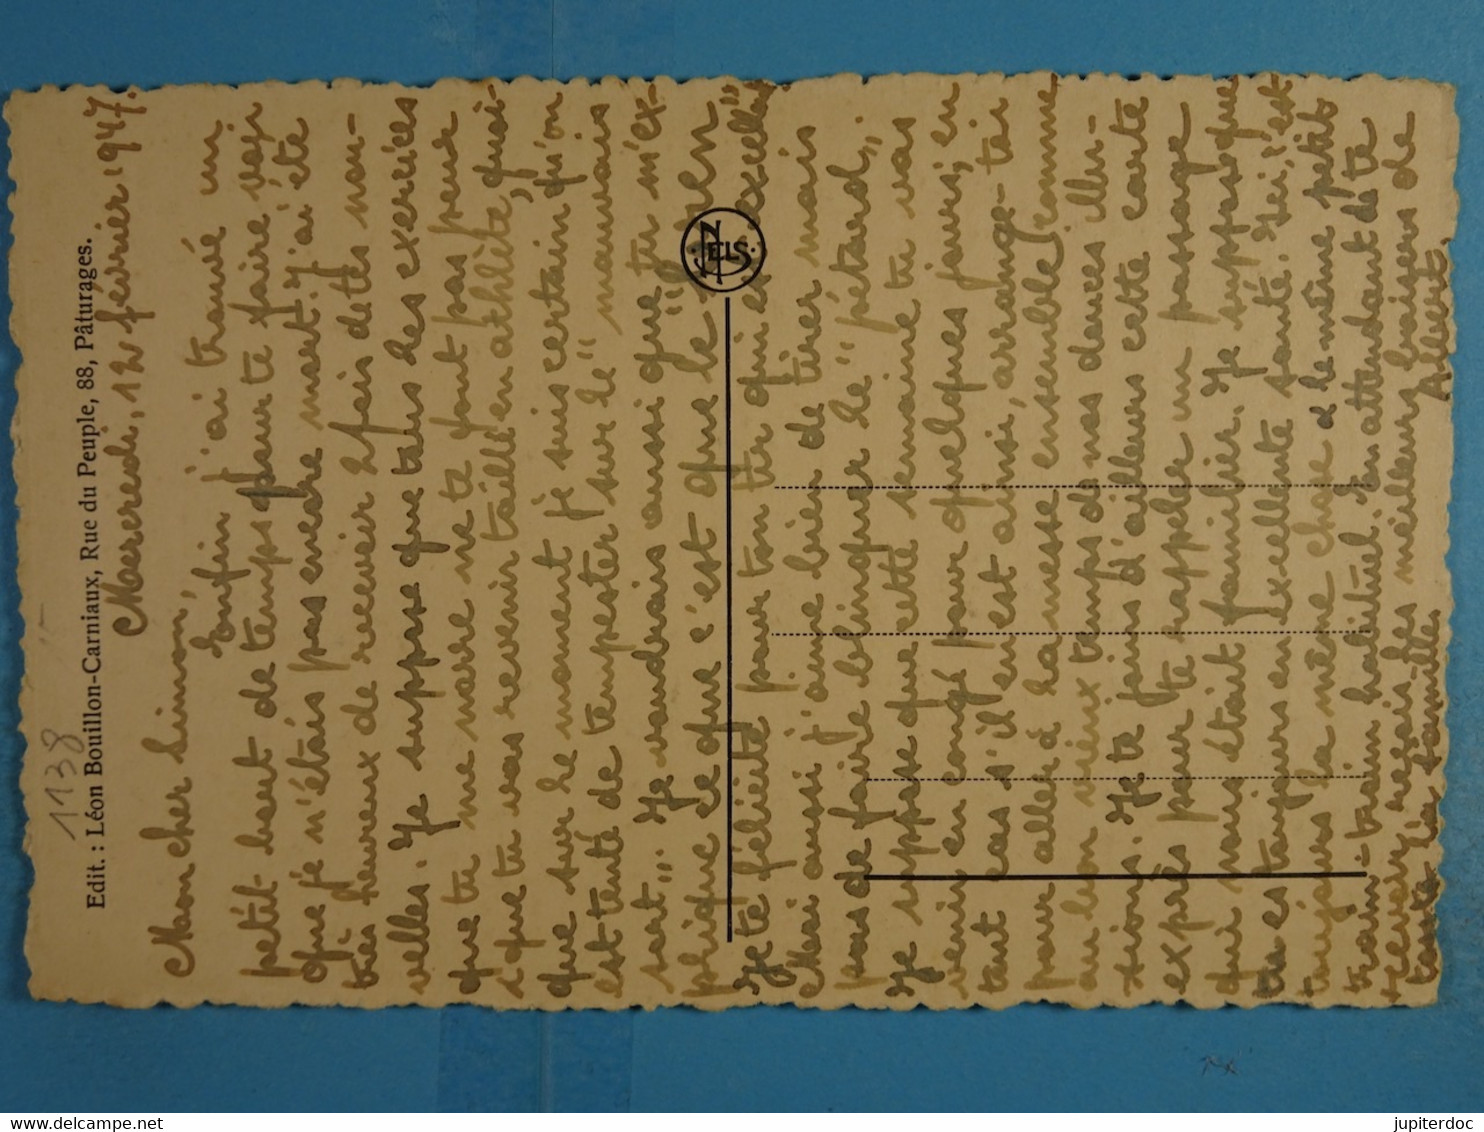 1138
Edit. : Léon Bouillon-Carniaux, Rue du Peuple, 88, Pâturages.
Mercredi, 12 février 1947.
Mon cher Simon,
Enfin j'ai trouvé un
petit bout de temps pour te faire voir
que je n'étais pas encore mort. J'ai été
très heureux de recevoir 2 fois de tes nou-
velles. Je suppose que tous ces exercices
que tu me narre ne te font pas peur
que tu vas revenir taillé en athlète, quoi-
que sur le moment je suis certain qu'on
est tenté de tempester sur le "mauvais
sort". Je voudrais aussi que tu m'ex-
plique ce que c'est que le "
Je te félicite pour ton tir qui est excellent
Moi aussi j'aime bien de tirer mais
pas de faire blinquer le "pétard".
Je suppose que cette semaine tu vas
venir en congé pour quelques jours; en
tout cas s'il en est ainsi, arrange-toi
pour aller à la messe ensemble comme
au bon vieux temps de nos douces illu-
sions. Je te joins d'ailleurs cette carte
exprès pour te rappeler un passage
qui nous était familier. Je suppose que
tu es toujours en excellente santé. Ici, c'est
toujours la même chose et le même petit
train-train habituel. En attendant de te
revoir reçois les meilleurs baisers de
toute la famille
Albert
NELS
jupiterdoc